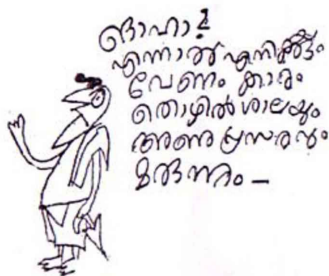 ഓഹാ!
എന്നാൽ എനിക്കും
വേണം കാറും
തൊഴിൽ ശാലയും
അണുപ്രസരവും
മരുന്നും —